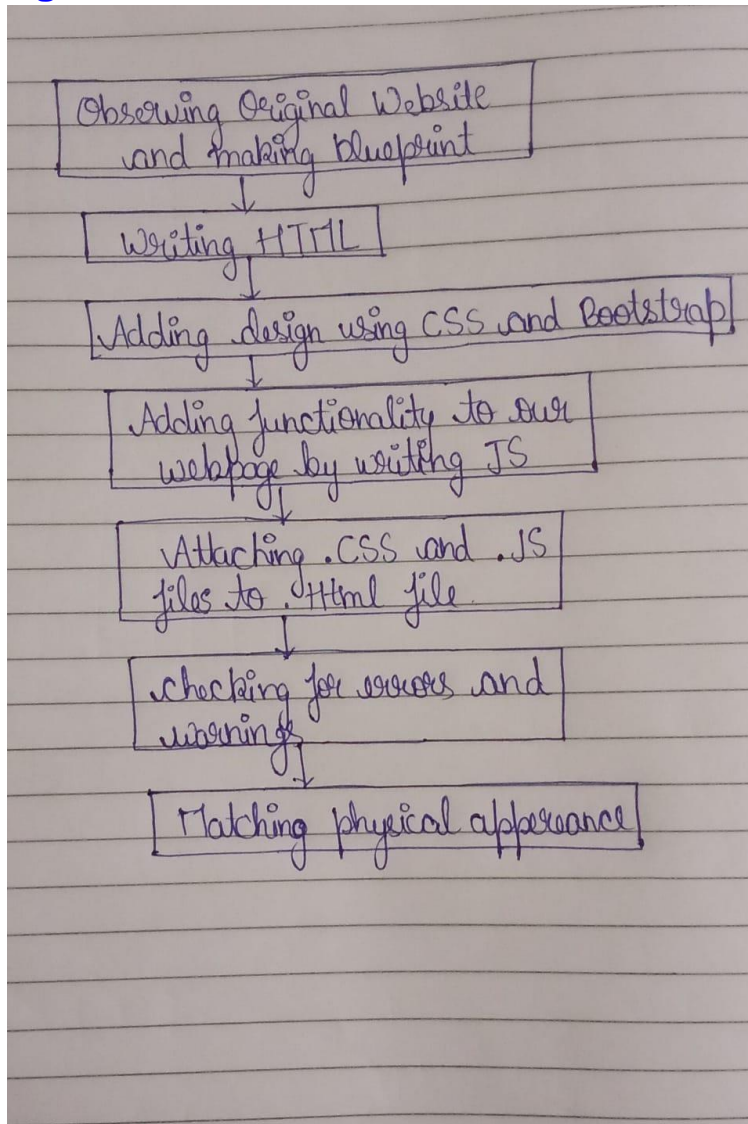 Observing Original Website
and making blueprint
Writing HTML
Adding design using CSS and Bootstrap
Adding functionality to our
webpage by writing JS
Attaching .CSS and .JS
files to .Html file
checking for errors and
warnings
Matching physical appereance